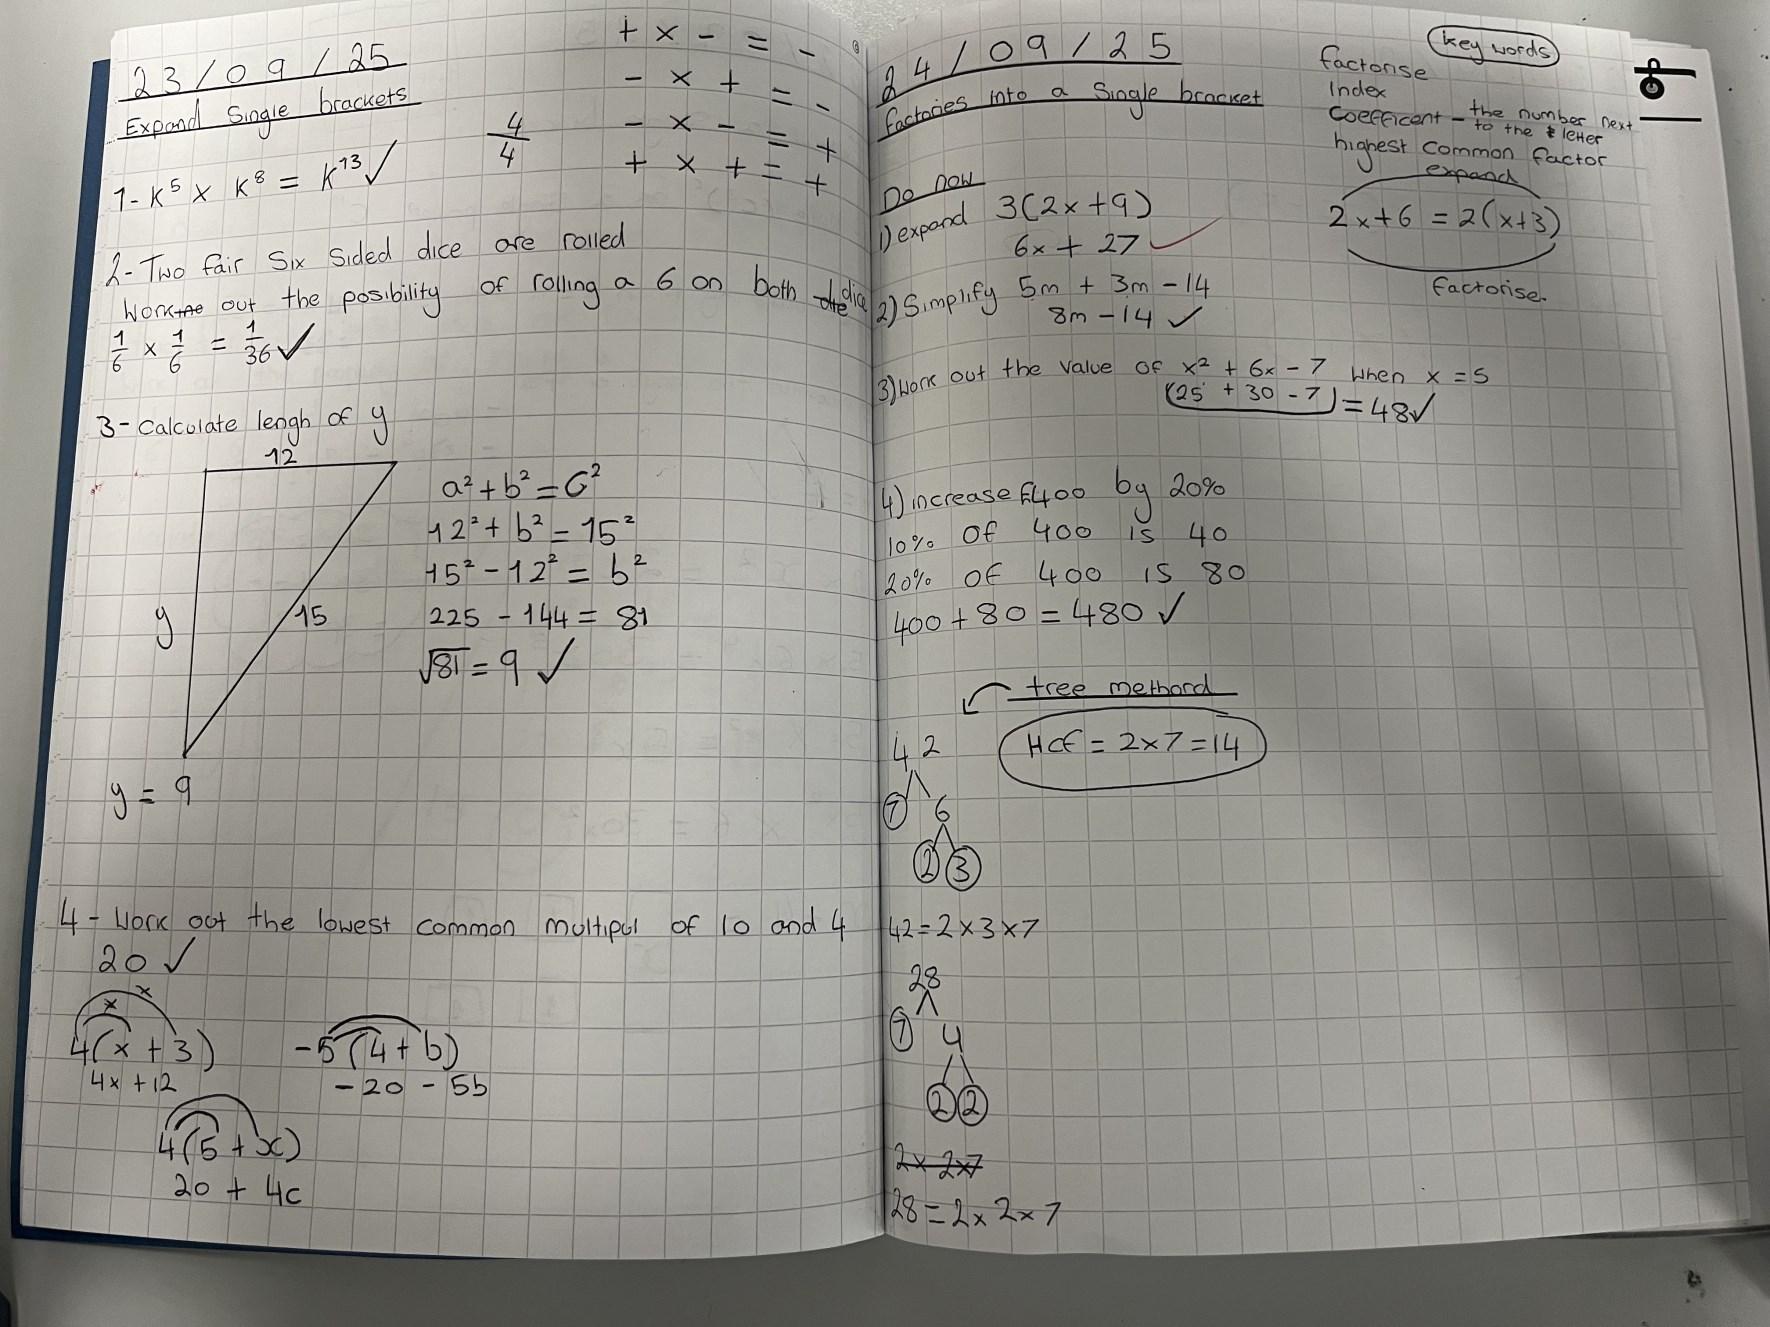 23/09/25
Expand Single brackets
+ x - = -
- x + = -
- x - = +
+ x + = +
4/4
1- K⁵ x K⁸ = K¹³ ✓
2- Two fair Six Sided dice are rolled
Work out the posibility of rolling a 6 on both dice
1/6 x 1/6 = 1/36 ✓
3- Calculate lengh of y
12
y
15
a² + b² = C²
12² + b² = 15²
15² - 12² = b²
225 - 144 = 81
√81 = 9 ✓
y = 9
4- Work out the lowest common multipul of 10 and 4
20 ✓
x x
4(x + 3)
4x + 12
-5(4 + b)
-20 - 5b
4(5 + x)
20 + 4c
24/09/25
factories into a Single bracket
Key words
factorise
Index
Coefficent - the number next to the letter
highest Common factor
expand
2x+6 = 2(x+3)
factorise.
Do now
1) expand 3(2x+9)
6x + 27 ✓
2) Simplify 5m + 3m - 14
8m - 14 ✓
3) Work out the value of x² + 6x - 7 when x = 5
(25 + 30 - 7) = 48 ✓
4) increase £400 by 20%
10% of 400 is 40
20% of 400 is 80
400 + 80 = 480 ✓
tree methord
HCF = 2x7 = 14
42
7 6
2 3
42 = 2 x 3 x 7
28
7 4
2 2
2x 2x7
28 = 2 x 2 x 7